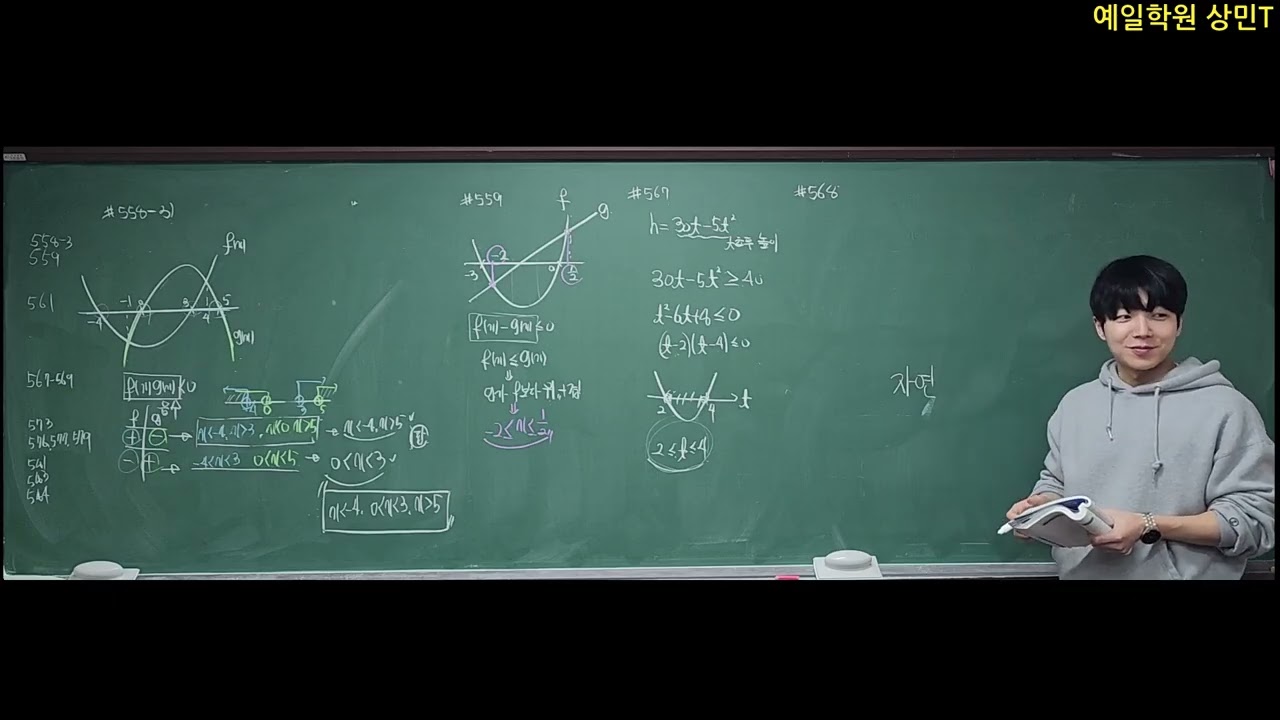 예일학원 상민T
#558-3)
558-3
559
561
567-569
573
576,577,579
581
f(x)
-4
-1
0
3
1
5
-4
g(x)
f(x)g(x)<0
음수
f g
⊕ ⊖ → x<-4, x>3, x<0, x>5 → x<-4, x>5
⊖ ⊕ → -4<x<3 0<x<5 → 0<x<3
x<-4, 0<x<3, x>5
#559
f
g
-2
-3
1/2
f(x)-g(x)≤0
f(x)≤g(x)
⇓
-2≤x≤1/2
#567
h=30t-5t²
30t-5t²≥40
t²-6t+8≤0
(t-2)(t-4)≤0
2 4 t
2≤t≤4
#568
자연